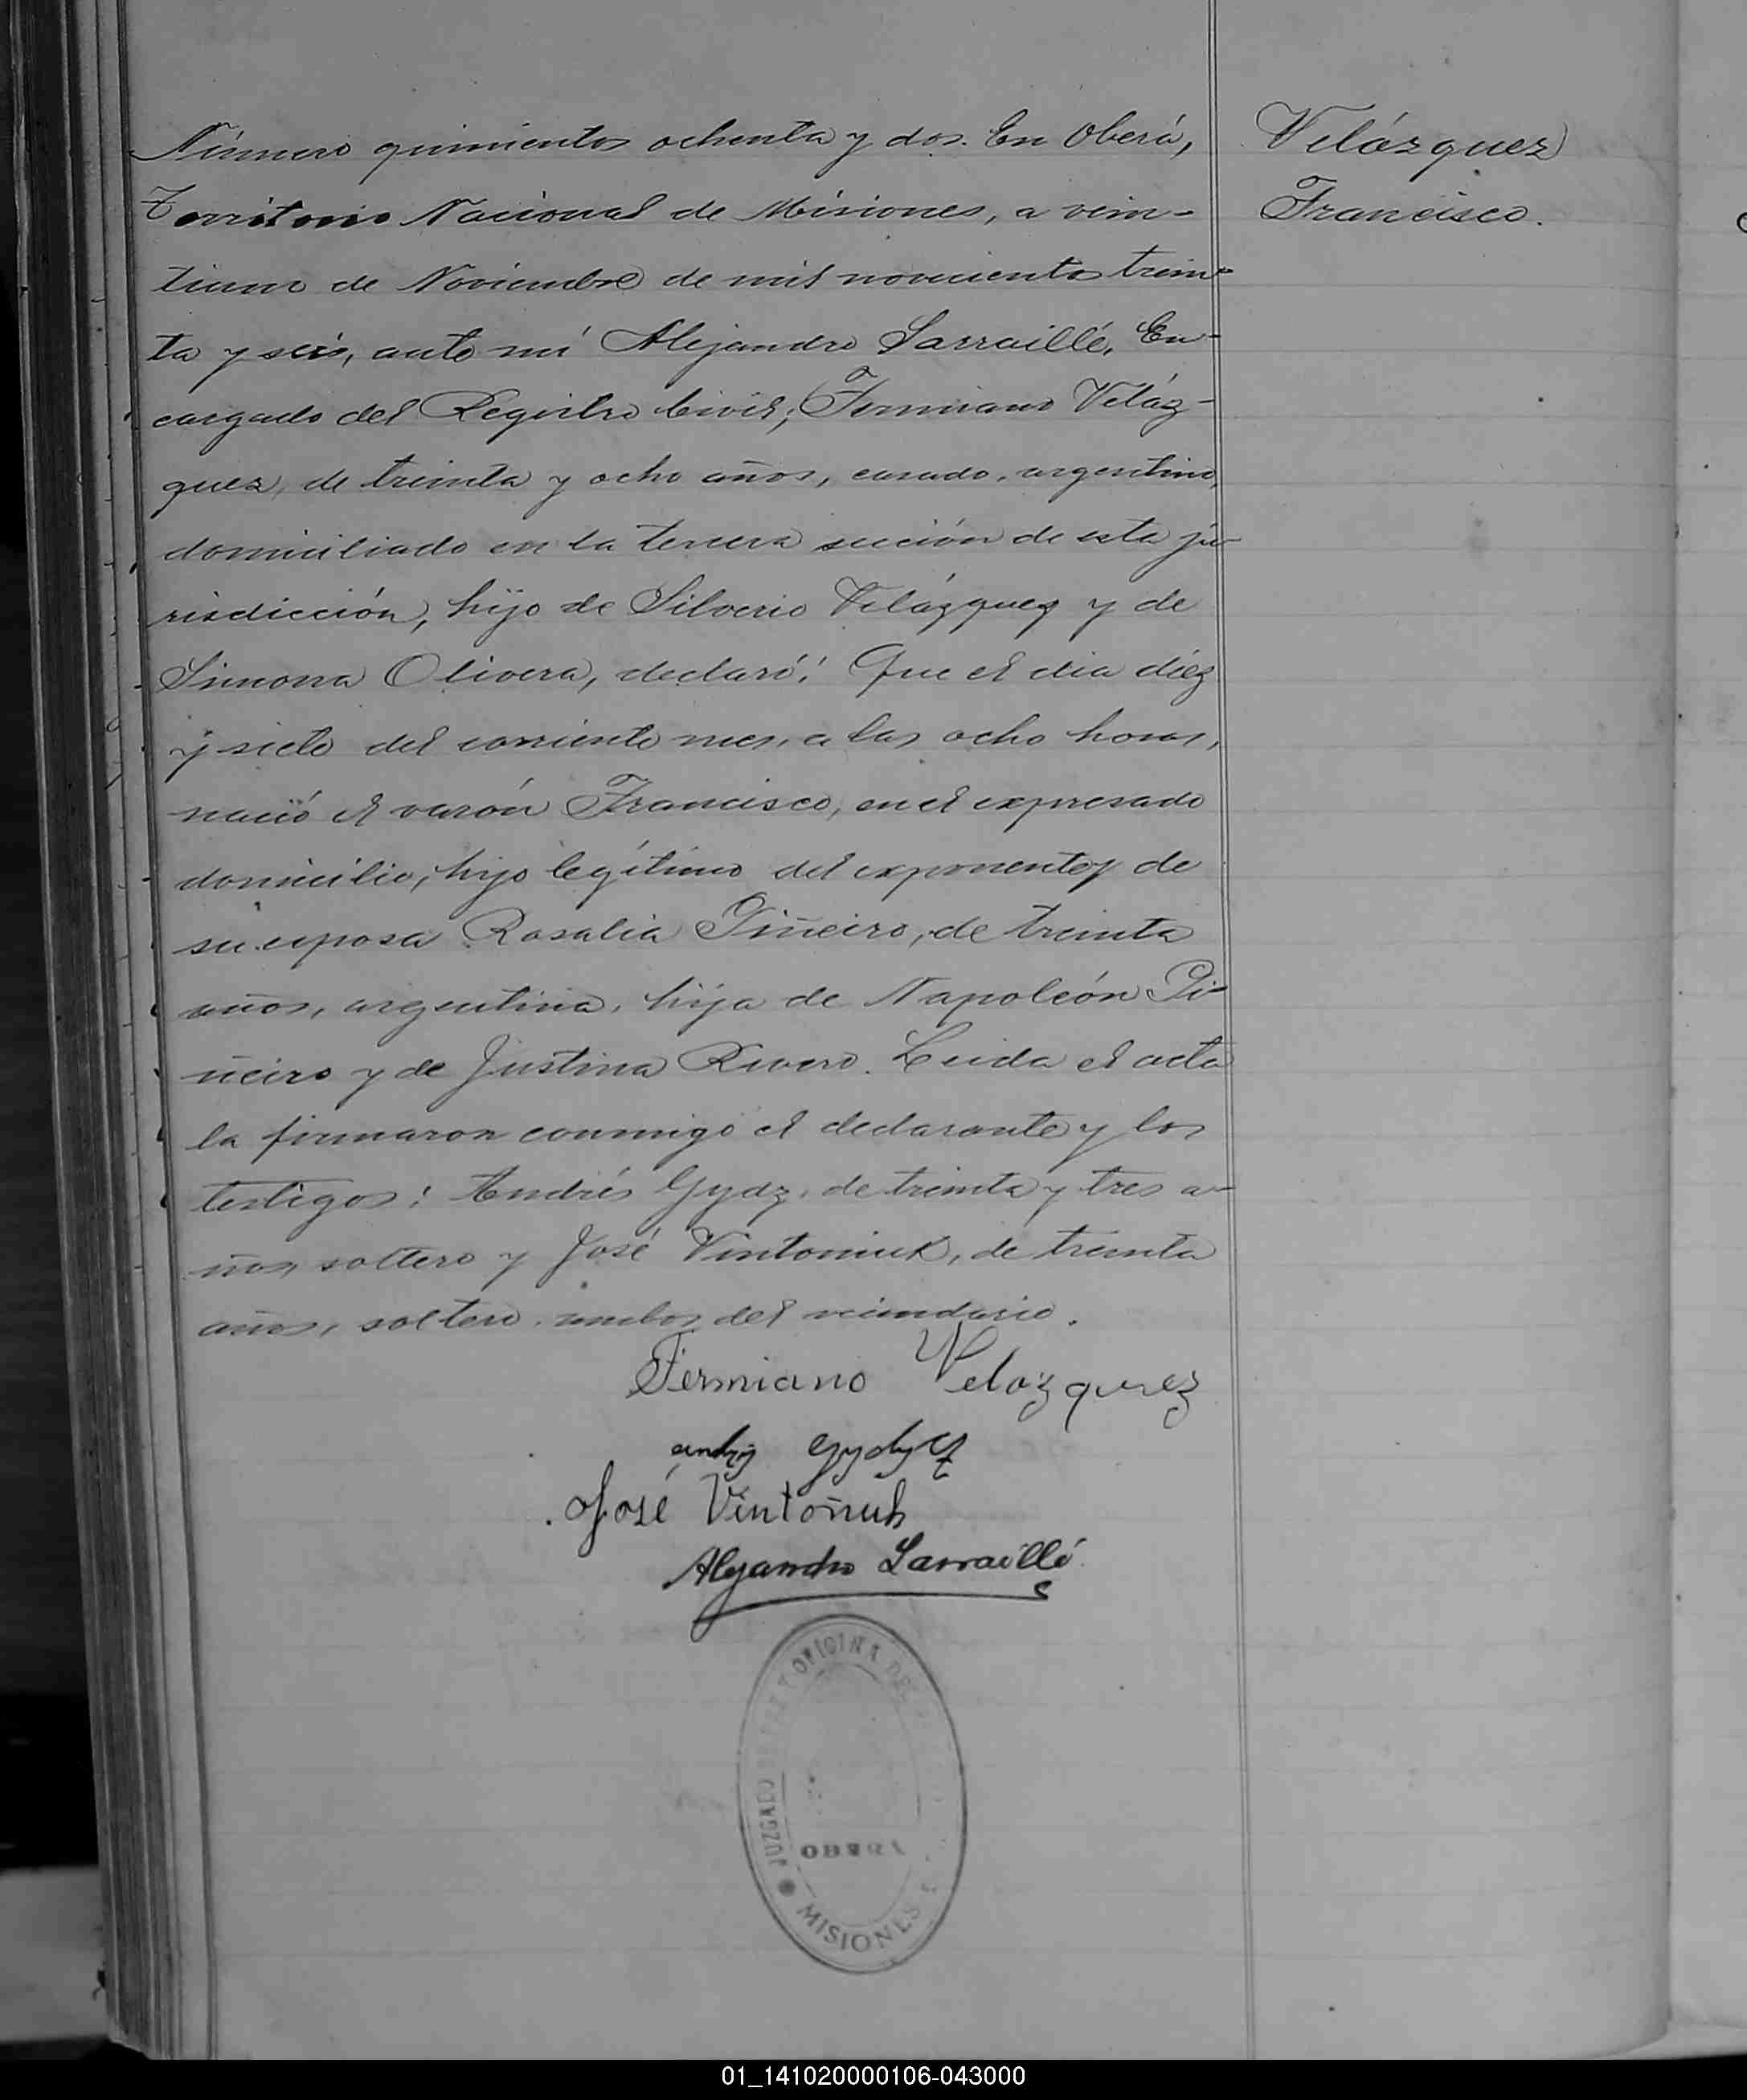 Número quinientos ochenta y dos. En Oberá,
Territorio Nacional de Misiones, a vein-
tiuno de Noviembre de mil novecientos trein-
ta y seis, ante mí Alejandro Larraillé, En-
cargado del Registro Civil; Fermiano Veláz-
quez, de treinta y ocho años, casado, argentino,
domiciliado en la tercera sección de esta ju-
risdicción, hijo de Silverio Velázquez y de
Simona Olivera, declaró: Que el dia diez
y siete del corriente mes, a las ocho horas,
nació el varón Francisco, en el expresado
domicilio, hijo legítimo del exponente y de
su esposa Rosalia Piñeiro, de treinta
años, argentina, hija de Napoleón Pi-
ñeiro y de Justina Rivero. Leida el acta
la firmaron conmigo el declarante y los
testigos: Andrés Gydz, de treinta y tres a-
ños, soltero y José Vintoniuk, de treinta
años, soltero, ambos del vecindario.
Velázquez
Francisco.
Fermiano Velazquez
José Vintoñuk
Alejandro Larraillé
JUZGADO DE PAZ Y OFICINA DEL
OBERA
MISIONES
01_141020000106-043000